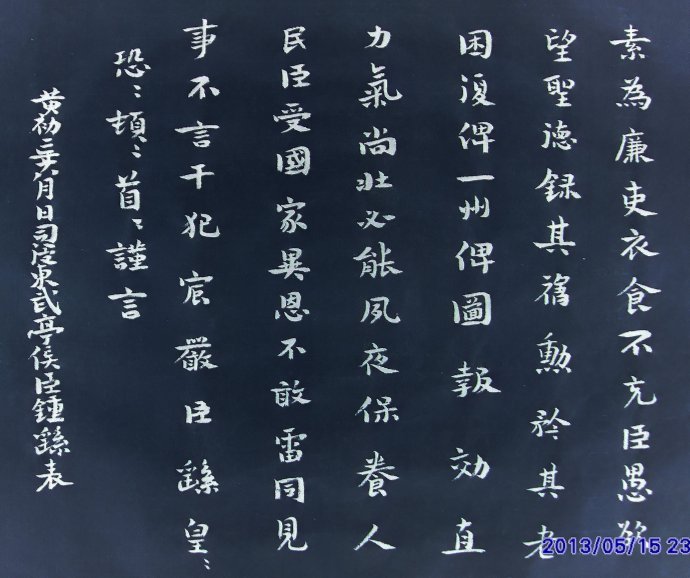 素為廉吏衣食不充臣愚欲
望聖德録其舊勳矜其老
困復俾一州俾圖報効直
力氣尚壯必能夙夜保養人
民臣受國家異恩不敢雷同見
事不言干犯宸嚴臣繇皇〻
恐〻頓〻首〻謹言
黃初二年八月日司徒東武亭侯臣鍾繇表
2013/05/15 23